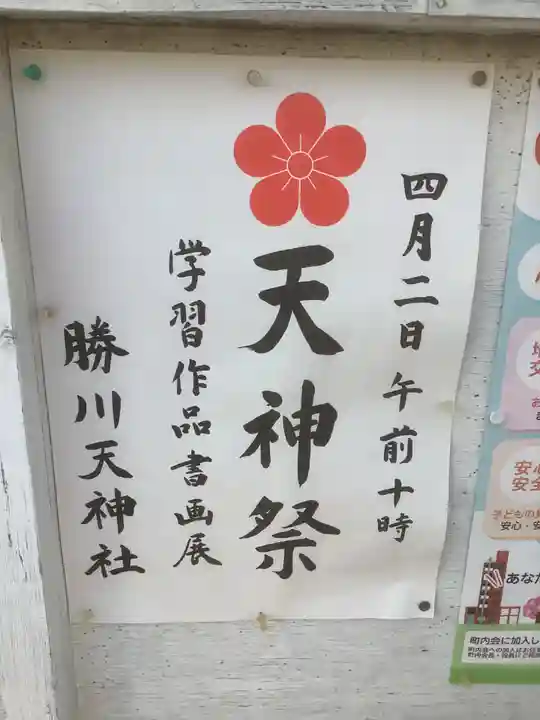 四月二日午前十時
天神祭
学習作品書画展
勝川天神社
安心
安全
子どもの
安心・安
あなた
町内会に加入し